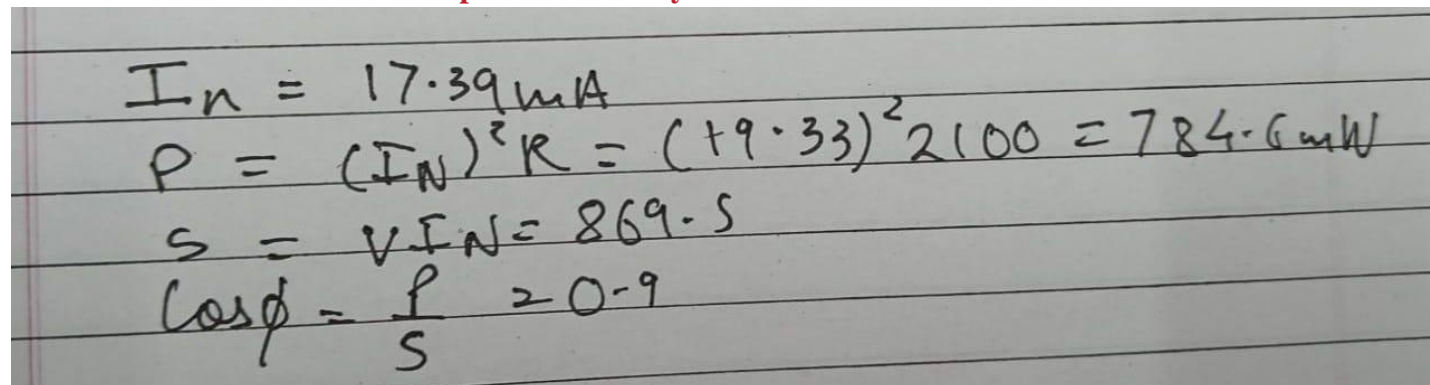 In = 17.39mA
P = (IN)²R = (19.33)² 2100 = 784.6mW
S = VIN = 869.5
Cosφ = P/S = 0.9